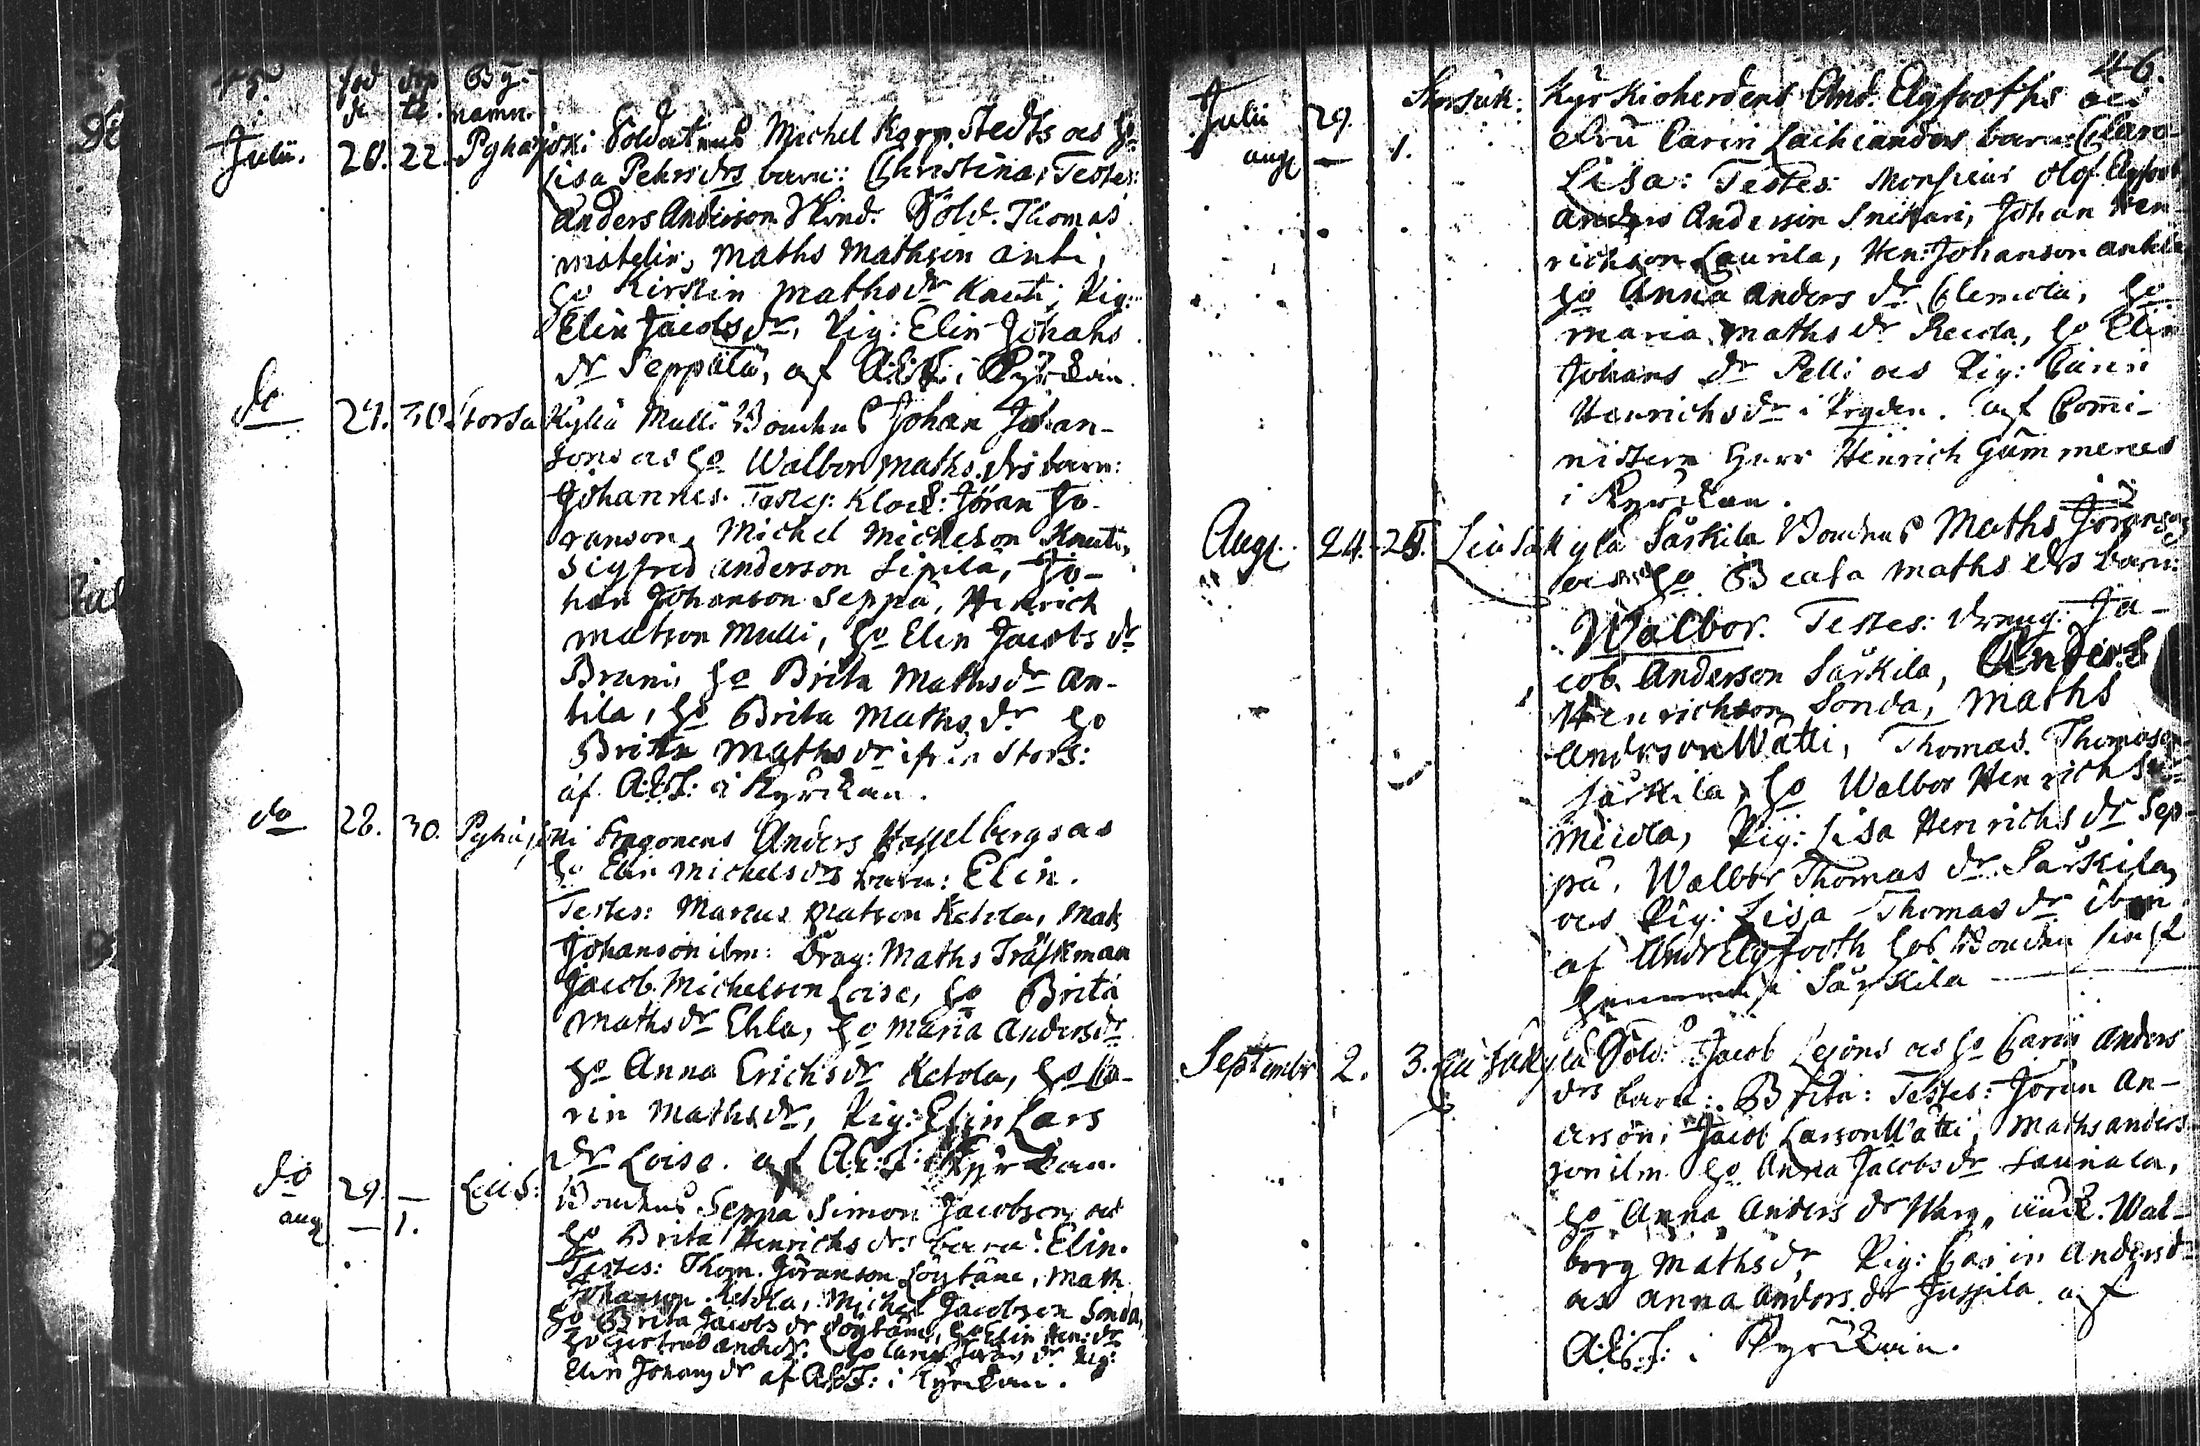 föd döp By:
de te. namn.
Julii. 20. 22. Pyhäjoki Soldatens Michel Kârp Stedts as ho
Lisa Pehrs drs barn: Christina. Testes:
Anders Anderson Sold. Thomas
matelin, Maths Mathson anti,
ho Kirstin Mathsdr Knuti, Pig:
Elin Jacobs dr, Pig: Elin Johans
dr Seppälä, af A:E:F: i Kyrckan.
do 29. 30. Storsäkylä Mulli Bondens Johan Johan-
sons as ho Walbor maths drs barn:
Johannes. Testes: Klock: Jöran Jö-
ranson, Michel Michelson Knuti,
Sigfred anderson Sipilä, Jo-
han Johanson Seppä, Henrich
matson Mulli, ho Elin Jacobs dr
Bruni, ho Brita Mathsdr An-
tila, ho Brita Maths dr ho
Brita Maths dr ifrån Stors:
af A:E:F: i Kyrckan.
do 28. 30. Pyhäjoki Dragonens Anders Hasselbergs as
ho Elin Michelsdrs barn: Elin.
Testes: Marcus Matson Ketola, Mats
Johanson ibm: Drag: Maths Träskman
Jacob Michelson Loise, ho Brita
Mathsdr Ehla, ho Maria Andersdr
ho Anna Erichsdr Ketola, ho Ca-
rin Mathsdr, Pig: Elin Lars
dr Loise. af A:E:F: i Kyrckan.
do 29. — Liu S: Bondens Seppä Simon Jacobson as
aug — 1. ho Brita Henrichs drs barn: Elin.
Testes: Thom. Jöranson Löytäne, Math
Johanson Ketola, Michel Jacobson Sonda,
ho Brita Jacobs dr Löytäne, ho Elin Hen: dr
ho Gertrud andr dr. ho Carin Jörans dr Pig:
Elin Johans dr af A:E:F: i Kyrckan.
46.
Julii 29. Storsäk: Kyrkioherdens And. Elgfooths as
aug — 1. Fru Carin Laihianders barn: Clara
Lisa: Testes: Monsieur Olof Elgfoot
Anders Anderson Snikari, Johan Hen-
richson Laurila, Hen: Johanson antila
ho Anna Anders dr Clemola, ho
Maria Maths dr Recola, ho Elin
Johans dr Pelli as Pig: Carin
Henrichs dr i Pryden. af Comi-
nistern Herr Henrich Gummerus
i Kyrckan.
Aug. 24. 25. Liusäkylä Särkilä Bondens Maths Jöransons
as ho Beata Maths drs barn:
Walbor. Testes: dräng: Ja-
cob Anderson Särkilä, Anders
Henrichson Sonda, Maths
Anderson Watti, Thomas Thomason
Särkilä, ho Walbor Henrichs dr
Micola, Pig: Lisa Henrichs dr Sep-
pä. Walbor Thomas dr Särkilä,
as Pig: Lisa Thomas dr ibm
af And Elgfooth hos Bonden
i Särkilä
Septembr 2. 3. Liusäkylä Sold: Jacob Lejons as ho Carin Anders
drs barn: Brita: Testes: Jöran An-
derson, Jacob Larson Watti, Maths anders
son ibm ho Anna Jacobs dr Saunala,
ho Anna Anders dr Warg, änck. Wal-
borg Mathsdr, Pig: Carin Andersdr
as Anna Anders dr Jussila af
A:E:F: i Kyrckan.